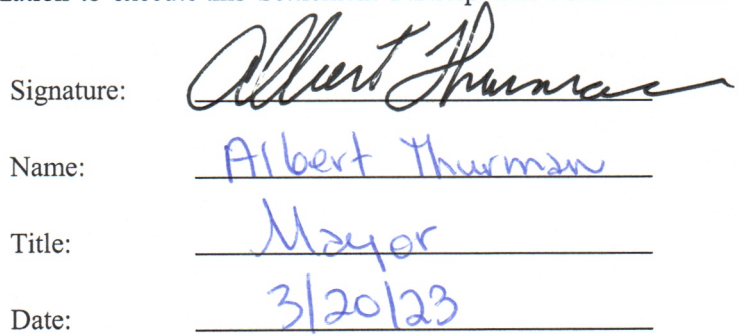 Signature: Albert Thurman
Name: Albert Thurman
Title: Mayor
Date: 3/20/23